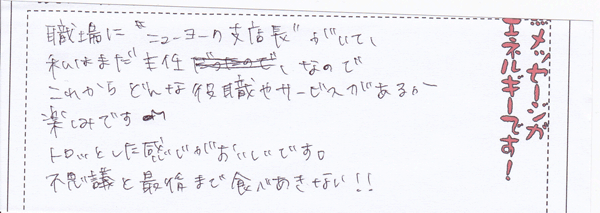 職場に"ニューヨーク支店長"がいて、
私はまだ主任 だったので、なので
これからどんな役職やサービスがあるか
楽しみです
トロッとした感じがおいしいです。
不思議と最後まで食べあきない!!
メッセージが
エネルギーです!